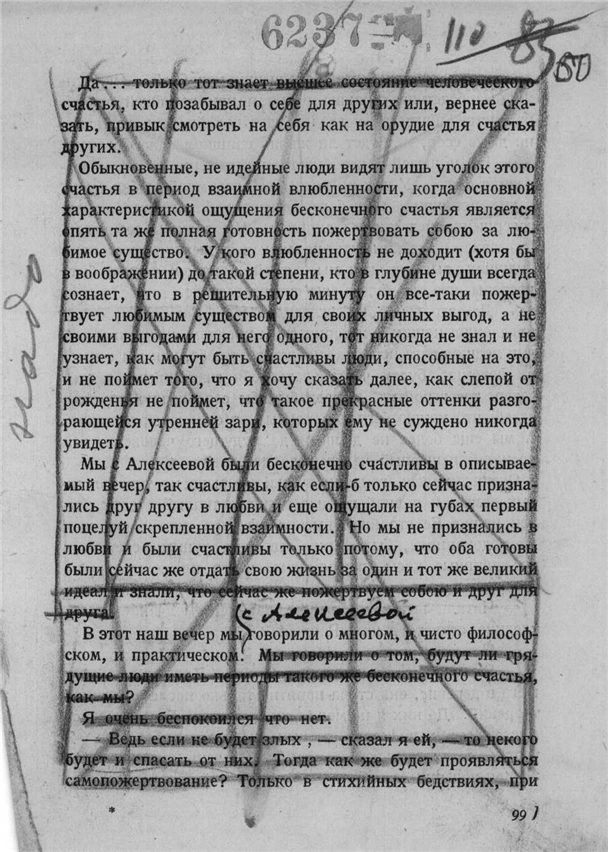 6237
110 83
80
Да... только тот знает высшее состояние человеческого
счастья, кто позабывал о себе для других или, вернее ска-
зать, привык смотреть на себя как на орудие для счастья
других.
Обыкновенные, не идейные люди видят лишь уголок этого
счастья в период взаимной влюбленности, когда основной
характеристикой ощущения бесконечного счастья является
опять та же полная готовность пожертвовать собою за лю-
бимое существо. У кого влюбленность не доходит (хотя бы
в воображении) до такой степени, кто в глубине души всегда
сознает, что в решительную минуту он все-таки пожер-
твует любимым существом для своих личных выгод, а не
своими выгодами для него одного, тот никогда не знал и не
узнает, как могут быть счастливы люди, способные на это,
и не поймет того, что я хочу сказать далее, как слепой от
рожденья не поймет, что такое прекрасные оттенки разго-
рающейся утренней зари, которых ему не суждено никогда
увидеть.
надо
Мы с Алексеевой были бесконечно счастливы в описывае-
мый вечер, так счастливы, как если-б только сейчас призна-
лись друг другу в любви и еще ощущали на губах первый
поцелуй скрепленной взаимности. Но мы не признались в
любви и были счастливы только потому, что оба готовы
были сейчас же отдать свою жизнь за один и тот же великий
идеал и знали, что сейчас же пожертвуем собою и друг для
друга.
с Алексеевой
В этот наш вечер мы говорили о многом, и чисто философ-
ском, и практическом. Мы говорили о том, будут ли гря-
дущие люди иметь периоды такого же бесконечного счастья,
как мы?
Я очень беспокоился что нет.
— Ведь если не будет злых , — сказал я ей, — то некого
будет и спасать от них. Тогда как же будет проявляться
самопожертвование? Только в стихийных бедствиях, при
*
99